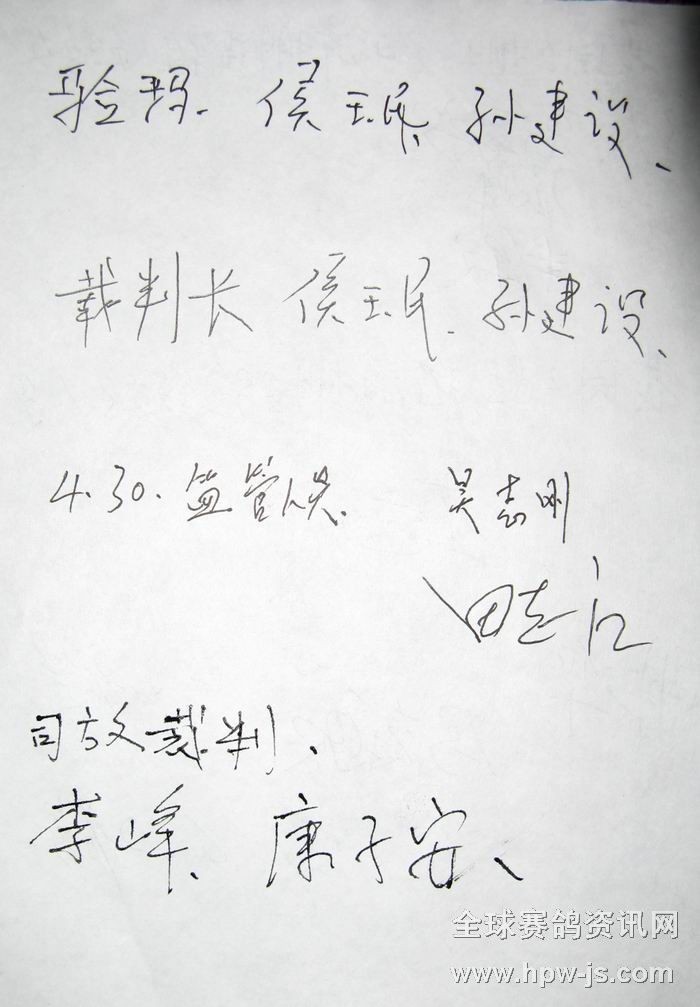 验鸽、侯玉民、孙建设、
裁判长 侯玉民、孙建设、
4.30.监管人员、 吴志刚
田志江
司放裁判、
李峰、康子安、
全球赛鸽资讯网
www.hpw-js.com